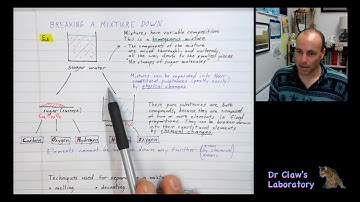 BREAKING A MIXTURE DOWN
Ex
Mixtures have variable compositions
This is a homogeneous mixture
- The components of the mixture
are mixed thoroughly and uniformly,
all the way down to the smallest pieces
"No clumps of sugar molecules"
sugar water
Mixtures can be separated into their
constituent substances (mostly usually)
by physical changes
sugar (sucrose)
These pure substances are both
compounds, because they are composed
of two or more elements in fixed
proportions. They can be broken down
into their constituent elements
by chemical changes
Carbon
Oxygen
Hydrogen
Oxygen
Elements cannot be broken down any further
by chemical
means
Techniques used for separating a mixture
- melting
- decanting
Dr Claw's
Laboratory